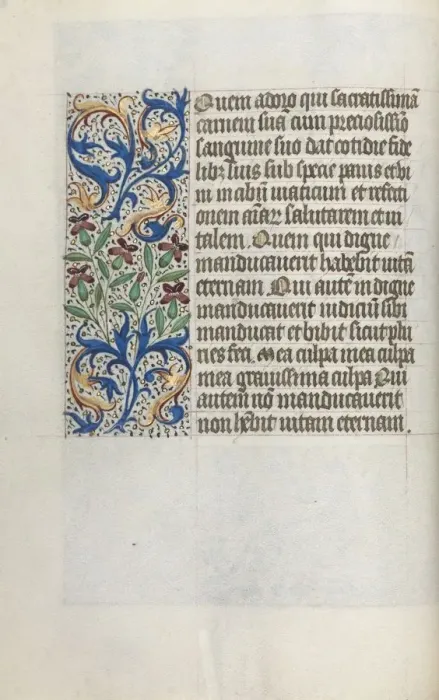 Quem adoro qui sacratissimā
carnem suā cum preciosissīo
sanguine suo dat cotidie fide
libꝫ suis sub specie panis et vi
ni in cibū viaticum et refecti
onem aīaꝝ salutarem et vi
talem. Quem qui digne
manducauerit habebit vitā
eternam Qui autē indigne
manducauerit iudiciū sibi
manducat et bibit sicut plu
ries feci. Mea culpa mea culpa
mea grauissima culpa Qui
autem nō manducauerit
non hēbit vitam eternam.